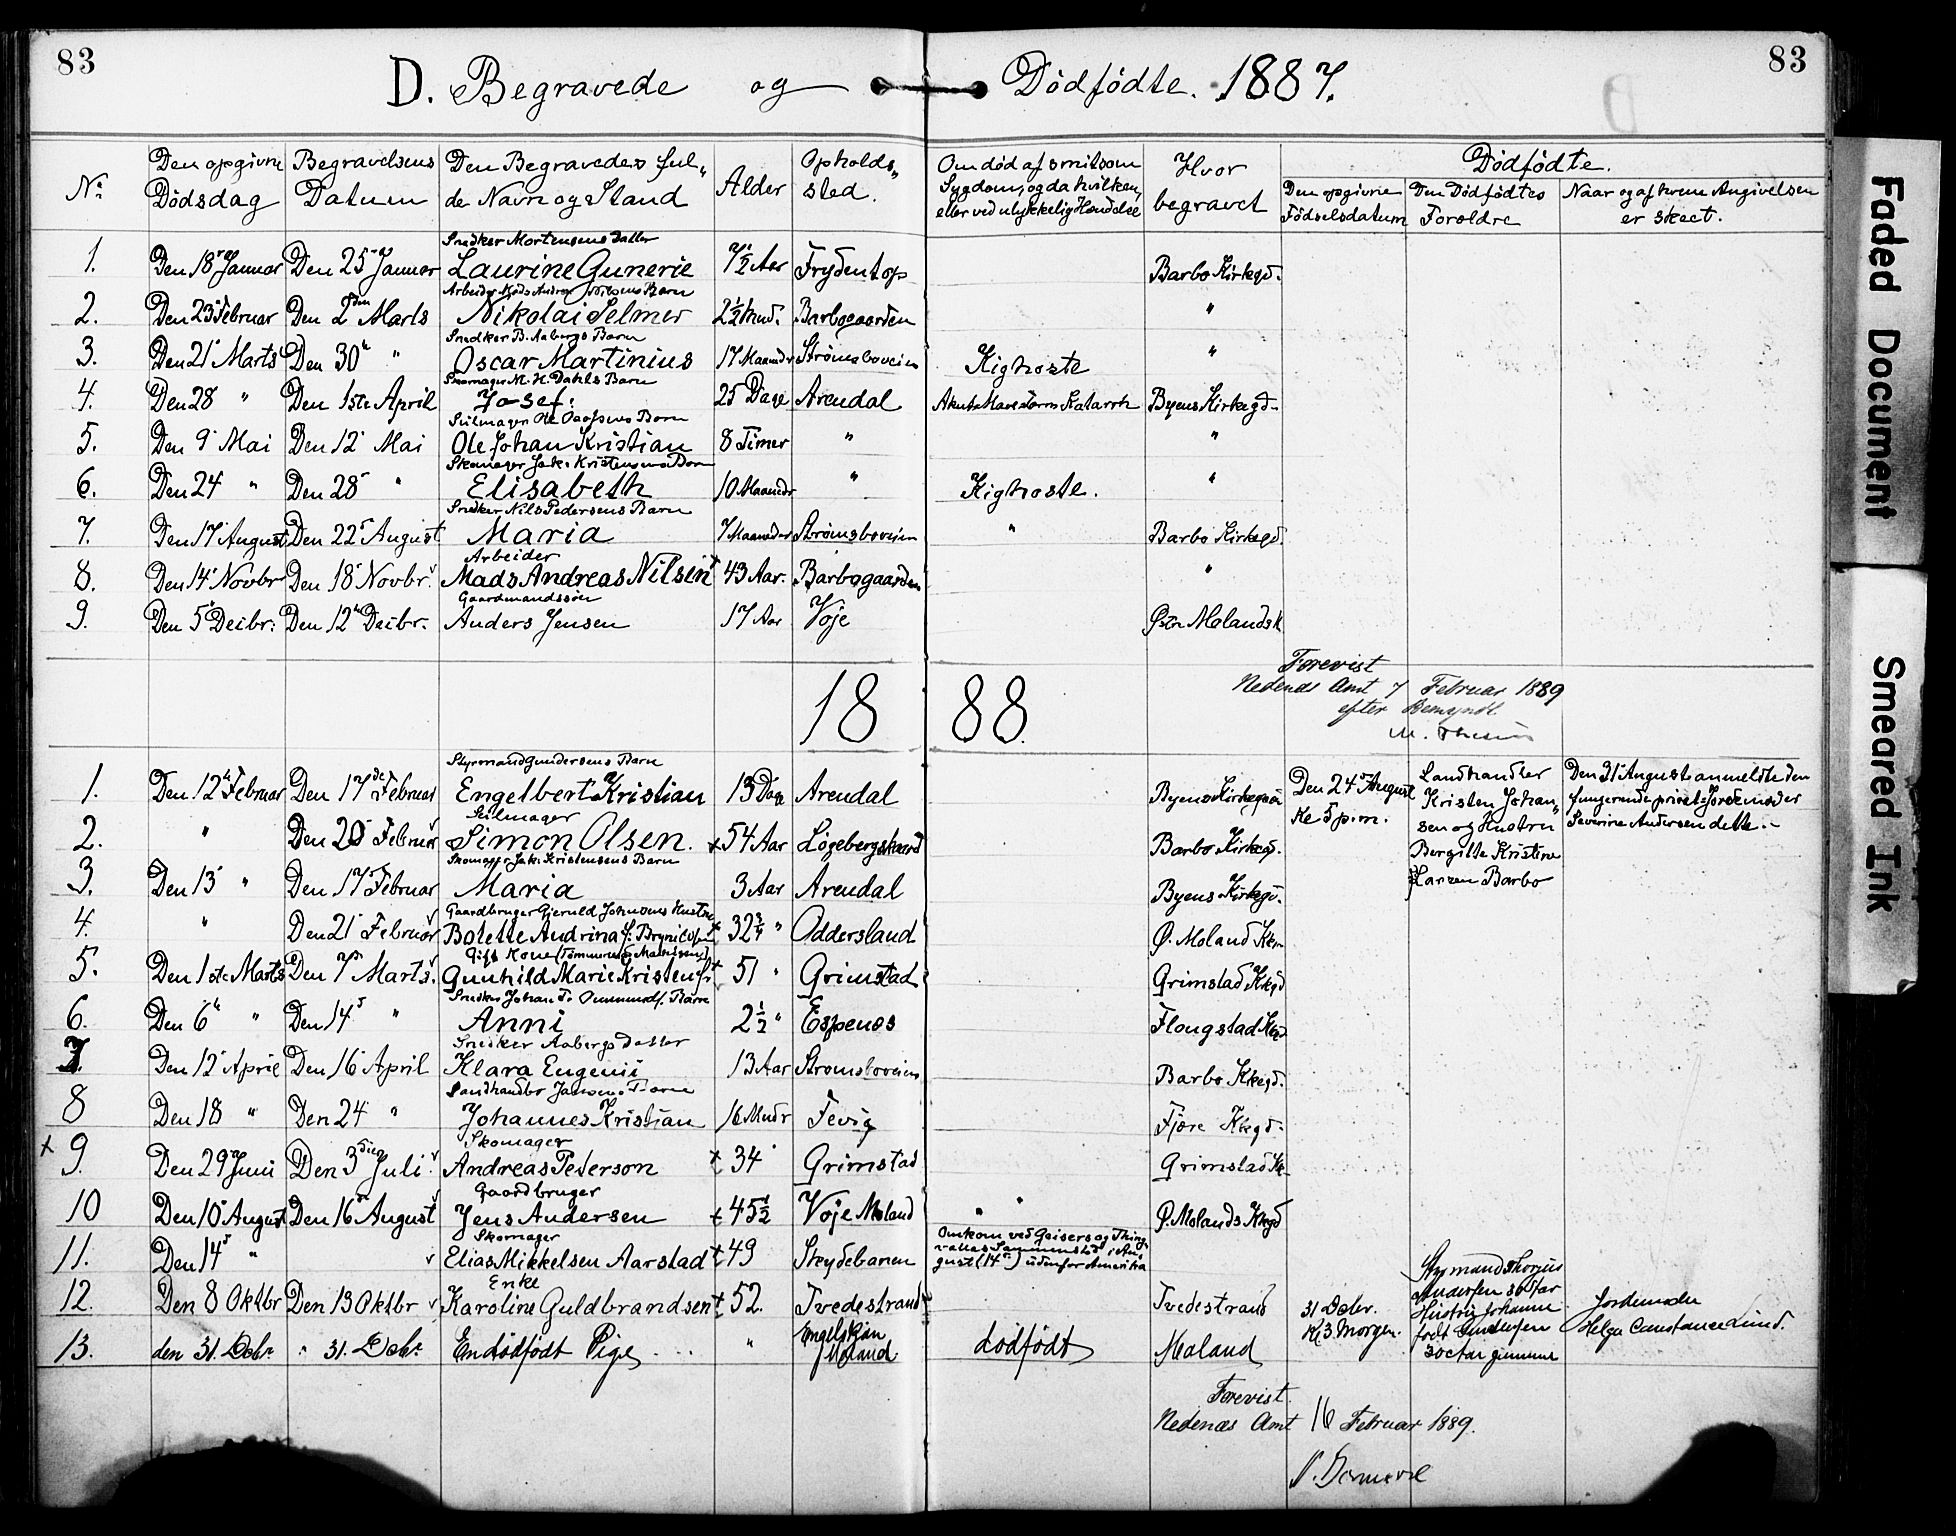 83
83
D. Begravede og Dødfødte. 1887.
No Den opgivne Dødsdag Begravelsens Datum Den Begravedes ful„ de Navn og Stand Alder Opholds„ sted. Om død af smitsom Sygdom, og da hvilken, eller ved ulykkelig Hændelse Hvor begravet Dødfødte.
Den opgivne Fødselsdatum Den Dødfødtes Forældre Naar og af hvem Angivelsen er skeet.
Snedker Mortensens Datter
1. Den 18 Januar Den 25 Januar Laurine Gunerie 7½ Aar Frydentop Barbo Kirkegd.
Arbeider Mads Andreas Nilsens Barn
2. Den 23 Februar Den 2den Marts Nikolai Selmer 2½ Mnd. Barbogaarden "
Snedker B. Aabergs Barn
3. Den 21 Marts Den 30 " Oscar Martinius 17 Maaneder Strømsboveien Kighoste "
Skomager M. H. Dahls Barn
4. Den 28 " Den 1ste April Josef. 25 Dage Arendal Akut Mave Tarm Katarrh Byens Kirkegd.
Seilmager Ole Barn
5. Den 9 Mai Den 12 Mai Ole Johan Kristian 8 Timer " "
Skomager Jak. Kristensens Barn
6. Den 24 " Den 28 " Elisabeth 10 Maaneder " Kighoste. "
Snedker Nils Pedersens Barn
7. Den 17 August Den 22 August Maria 7 Maaneder Strømsboveien " Barbo Kirkegd.
Arbeider
8. Den 14 Novbr Den 18 Novbr. Mads Andreas Nilsen 43 Aar. Barbogaarden "
Gaardmandssøn
9. Den 5 Decbr. Den 12 Decbr. Anders Jensen 17 Aar Voje Østr Molands K
Forevist
Nedenes Amt 7 Februar 1889
efter Bemynd.
M.
1888.
Styrmand Gundersens Barn
1. Den 12 Februar Den 17de Februar Engelbert Kristian 13 Dage Arendal Byens Kirkegaar Den 24 August Kl 5 p.m. Landhandler Kristen Johan„ sen og Hustru Bergitte Kristine Larsen Barbo Den 31 August anmeldte den fungerende privat Jordemoder Severine Andersen dette.-
Seilmager
2. " Den 20 Februar Simon Olsen. 54 Aar Løgebergskaard Barbo Kirkegd.
Skomager Jak. Kristensens Barn
3. Den 13 " Den 17 Februar Maria 3 Aar Arendal Byens Kirkegd.
Gaardbruger Gjeruld Johnsens Hustru
4. " Den 21 Februar Botette Andrina f. 32¾ " Oddersland Ø. Moland
Gift Kone
5. Den 1ste Marts Den 7 Marts. Gunhild Marie 51 " Grimstad Grimstad Kkgd
Snedker Johan Barn
6. Den 6 " Den 14 " Anni 2½ " Espenes
Snedker Aabergs Datter
7. Den 12 April Den 16 April Klara Eugenii 13 Aar Strømsboveien Barbo Kkegd.
Landhandler Barn
8 Den 18 " Den 24 " Johannes Kristian 16 Mndr Fevig Fjære Kkegd.
Skomager
9. Den 29 Juni Den 3die Juli. Andreas Peterson 34 Grimstad Grimstad Kk
Gaardbruger
10 Den 10 August Den 16 August Jens Andersen 45½ Voje Moland " " Ø. Molands Kkgd
Skomager
11. Den 14 " Elias Mikkelsen Aarstad 49 Skydebanen Omkom ved Geisers og Thing„ vallas Sammenstød i Au„ gust (14) udenfor Amerika
Enke
12. Den 8 Oktbr Den 13 Oktbr Karoline Guldbrandsen 52. Tvedestrand Tvedestrand
13. den 31. Debr. " 31. Debr. En dødfødt Pige " Moland dødfødt Moland 31 Debr. Kl 3. Morgen. Styrmand Thorjus Andersen Hustru Johanne født Jordemoder Helga Constance Lund.
Forevist.
Nedenæs Amt 16 Februar 1889.
Faded Document
Smeared Ink